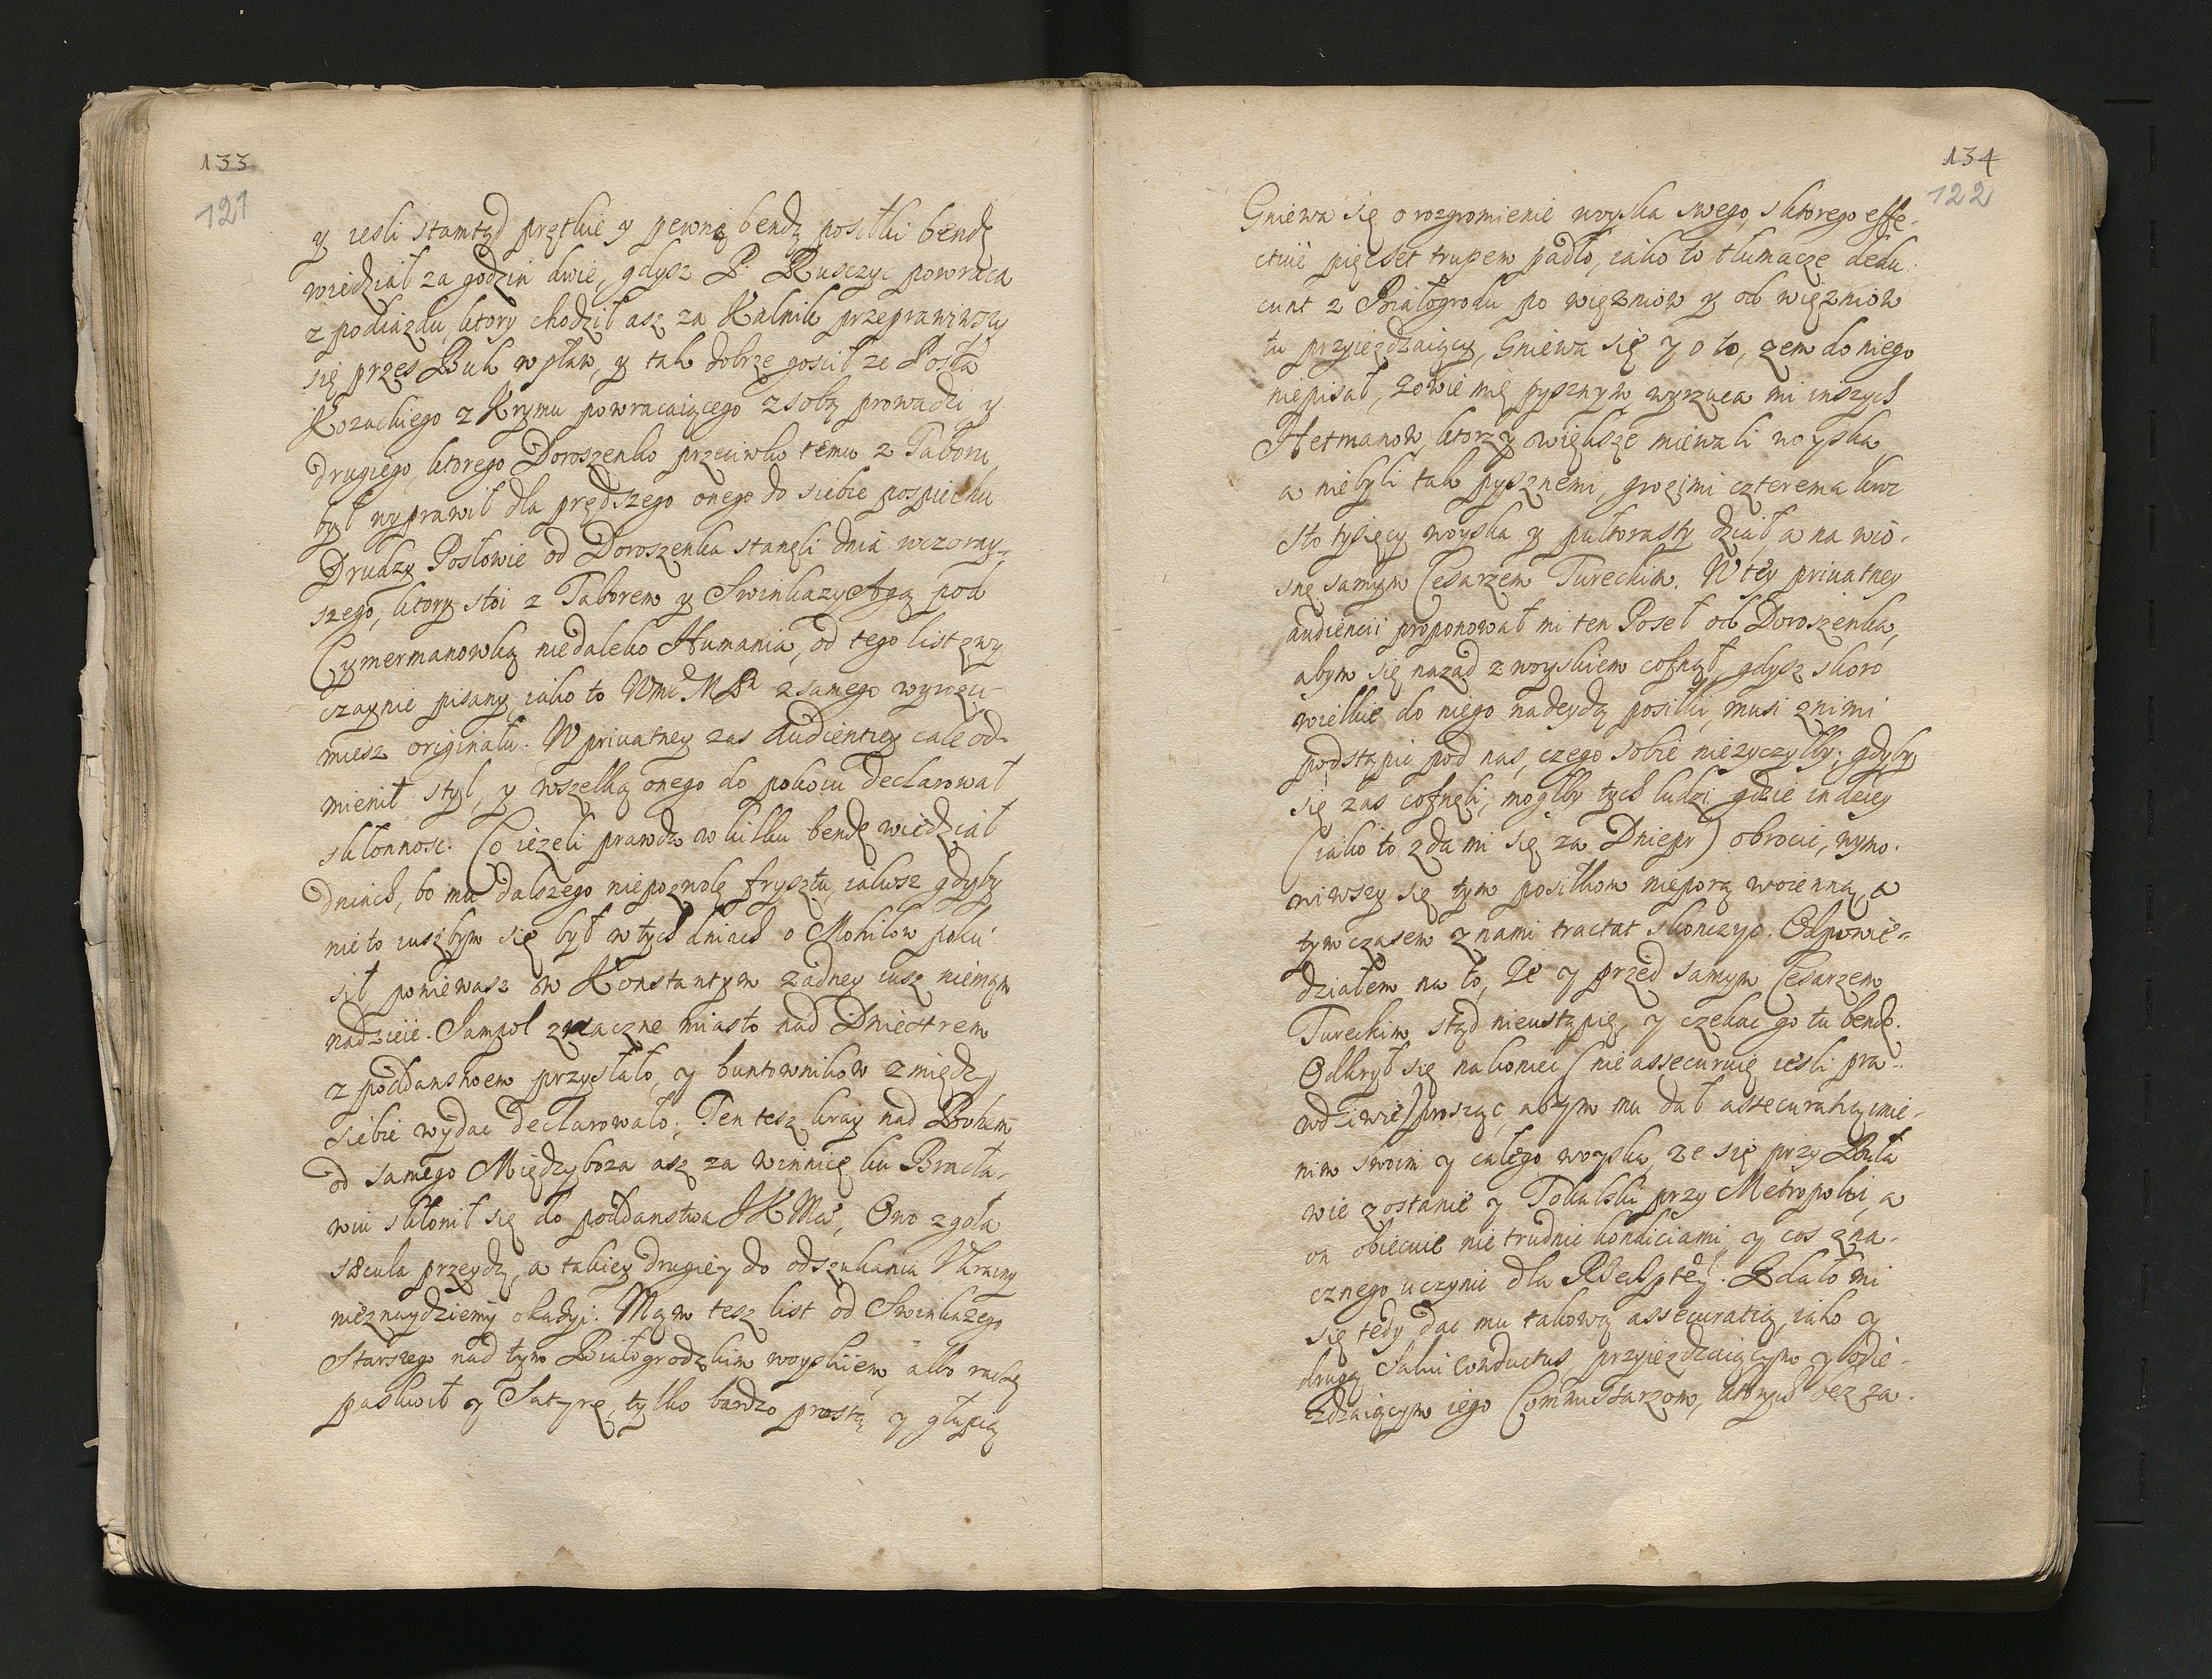 133
121
y iesli stamtąd prętkie y pewne bendą posiłki bendę
wiedział za godzin dwie, gdysz P. Rusczyc powraca
z podiazdu, ktory chodził asz za Kalnik przeprawiwszy
się przes Buh w pław, y tak dobrze gościł ze Posła
Kozackiego z Krymu powracaiącego z sobą prowadzi y
drugiego, ktorego Doroszenko przeciwko temu z Taboru
był wyprawił dla prędszego onego do siebie pospiechu
Drudzy Posłowie od Doroszenka stanęli dnia wczoray-
szego, ktory stoi z Taborem y Swinkazy Agą pod
Cymermanowką niedaleko Humania, od tego list zwy
czaynie pisany, iako to Wmć M Pa z samego wyrozu-
miesz originału. W priuatney zas Audientiey cale od-
mienił styl, y wszelką onego do pokoiu declarował
skłonnosc. Co iezeli prawda w kilku bendę wiedział
dniach, bo mu dalszego niepozwolę frysztu, iakosz gdyby
nie to iuszbym się był w tych dniach o Mohilow poku
sił poniewasz w Konstantym zadney iusz niemam
nadzieie. Jampol znaczne miasto nad Dniestrem
z poddanstwem przysłało, y buntownikow z między
siebie wydac declarowało; Ten tesz kray nad Bohem
od samego Międzyboza asz za winnicę ku Bracła-
wiu skłonił się do poddanstwa JKMci, Ono zgoła
sæcula przeydą, a takiey drugiey do odszukania Vkrainy
nieznaydziemy okazyi. Mam tesz list od Swinkazego
Starszego nad tym Białogrodzkim woyskiem, albo raczey
paskwil y Satyrę, tylko bardzo prostą y głupią
134
122
Gniewa się o rozgromienie woyska swego, z ktorego effe-
ctiue pięcset trupem padło, iako to tłumacze dedu
cunt z Białogrodu po więzniow y od więzniow
tu przyiezdzaiący, Gniewa się y o to, zem do niego
niepisał, zowie mię pysznym, wyrzuca mi inszych
Hetmanow, ktorzy większe miewali woyska,
a niebyli tak pysznemi, grozi mi czterema kroc
sto tysięcy woyska y pułtorasty dział, a na wio-
snę samym Cesarzem Tureckim. W tey priuatney
audiencii proponował mi ten Poseł od Doroszenka,
abym się nazad z woyskiem cofnął, gdysz skoro
wielkie do niego nadeydą posiłki, musi z nimi
podstąpic pod nas, czego sobie niezyczyłby; gdyby
się zas cofnęli, mogłby tych ludzi gdzie indziey
(iako to zda mi się za Dniepr) obrocic, wymo-
wiwszy się tym posiłkom nieporą woienną, a
tymczasem z nami tractat skonczyc. Odpowie-
działem na to, Ze y przed samym Cesarzem
Tureckim stąd nieustąpię, y czekac go tu bendę.
Odkrył się nakoniec (nie assecuruię iesli pra-
wdziwie) prosząc, abym mu dał assecuratią imie-
niem swoim y całego woyska, ze się przy Buła
wie zostanie y Tokalski przy Metropolii, a
on obiecuie nie trudnic kondiciami y cos zna-
cznego uczynic dla Rzeczyptey. Zdało mi
się tedy dac mu takową assecuratią, iako y
drugą salui conductus, przyiezdzaiącym y odie-
zdzaiącym iego Commissarzom, ktorych bez za-